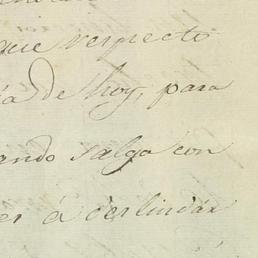 que respecto
ia de hoy, para
ando salga con
er á deslindar